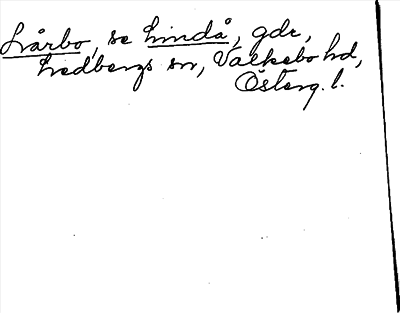 Lårbo, se Lindå, gdr,
Ledbergs sn, Valkebo hd,
Österg. l.